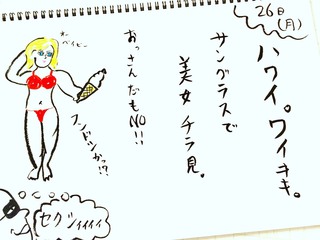 26日(月)
ハワイ。ワイキキ。
サングラスで
美女チラ見。
おっさんだもNO!!
オーベイビー
フンドシかっ!?
セクシィィィィ